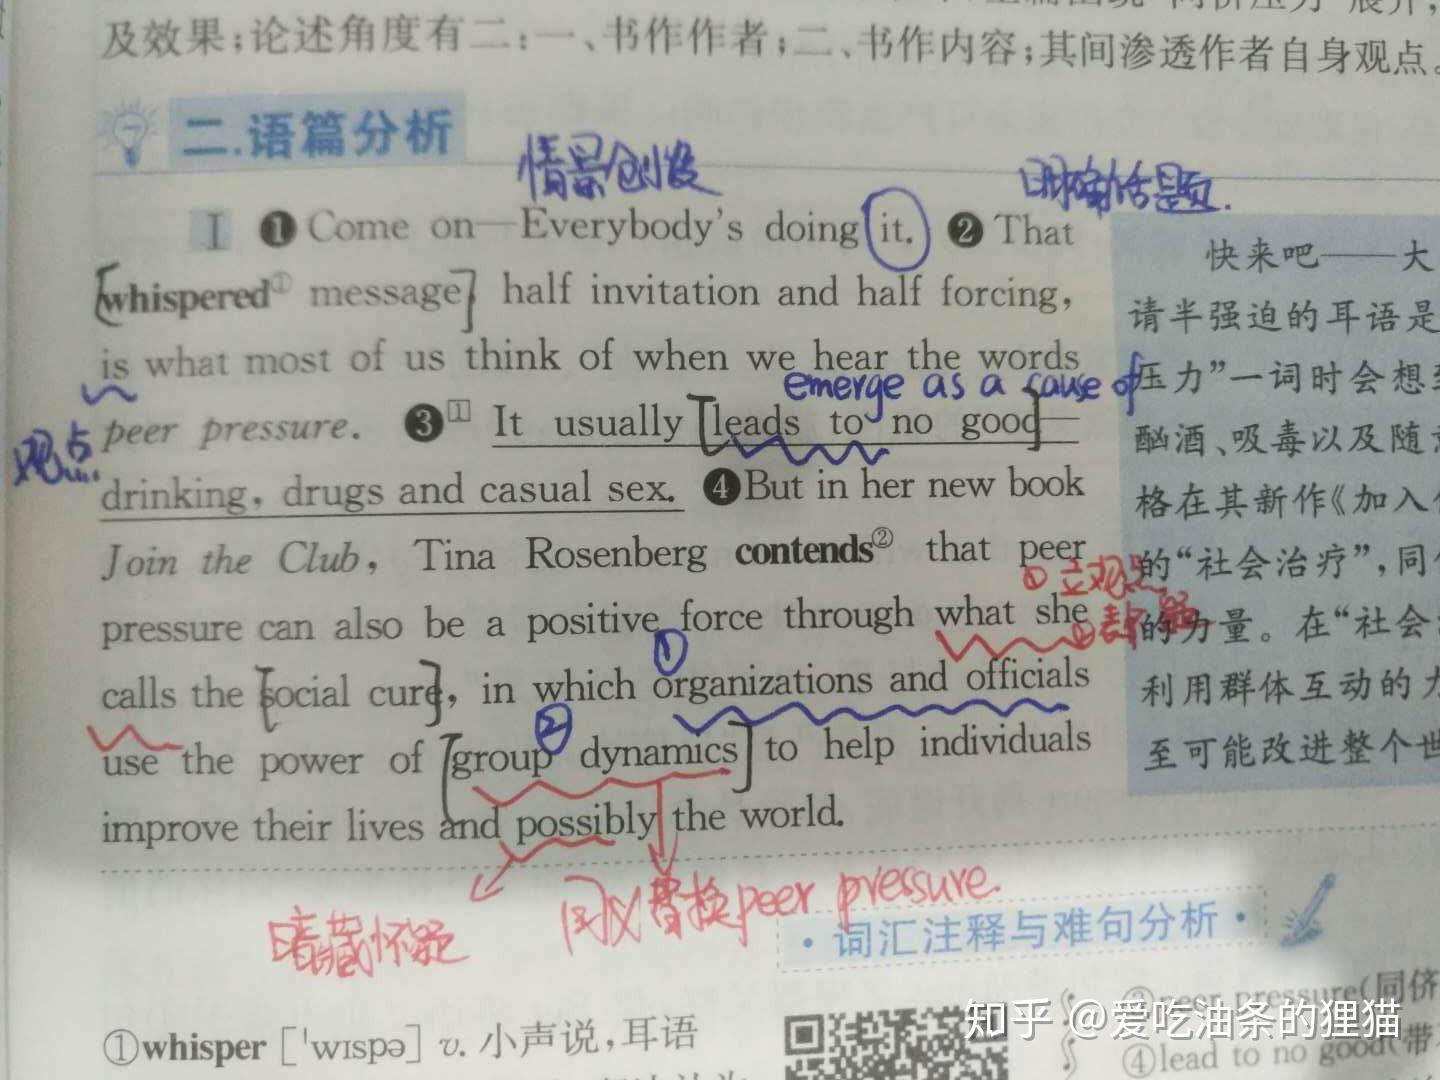 及效果；论述角度有二：一、书作作者；二、书作内容；其间渗透作者自身观点。
二.语篇分析
情景创设
明确话题.
I ❶ Come on—Everybody's doing it. ❷ That
whispered① message, half invitation and half forcing,
is what most of us think of when we hear the words
emerge as a cause of
观点
peer pressure. ❸[1] It usually leads to no good—
drinking, drugs and casual sex. ❹ But in her new book
Join the Club, Tina Rosenberg contends② that peer
pressure can also be a positive force through what she
① 立观点
calls the social cure, in which organizations and officials
①
use the power of group dynamics to help individuals
②
improve their lives and possibly the world.
暗藏怀疑
同义替换peer pressure.
快来吧——大
请半强迫的耳语是
压力”一词时会想到
酗酒、吸毒以及随意
格在其新作《加入
的“社会治疗”，同
的力量。在“社会
利用群体互动的力
至可能改进整个世
·词汇注释与难句分析·
①whisper [ˈwɪspə] v. 小声说，耳语
③peer pressure(同侪
④lead to no good(带
知乎 @爱吃油条的狸猫